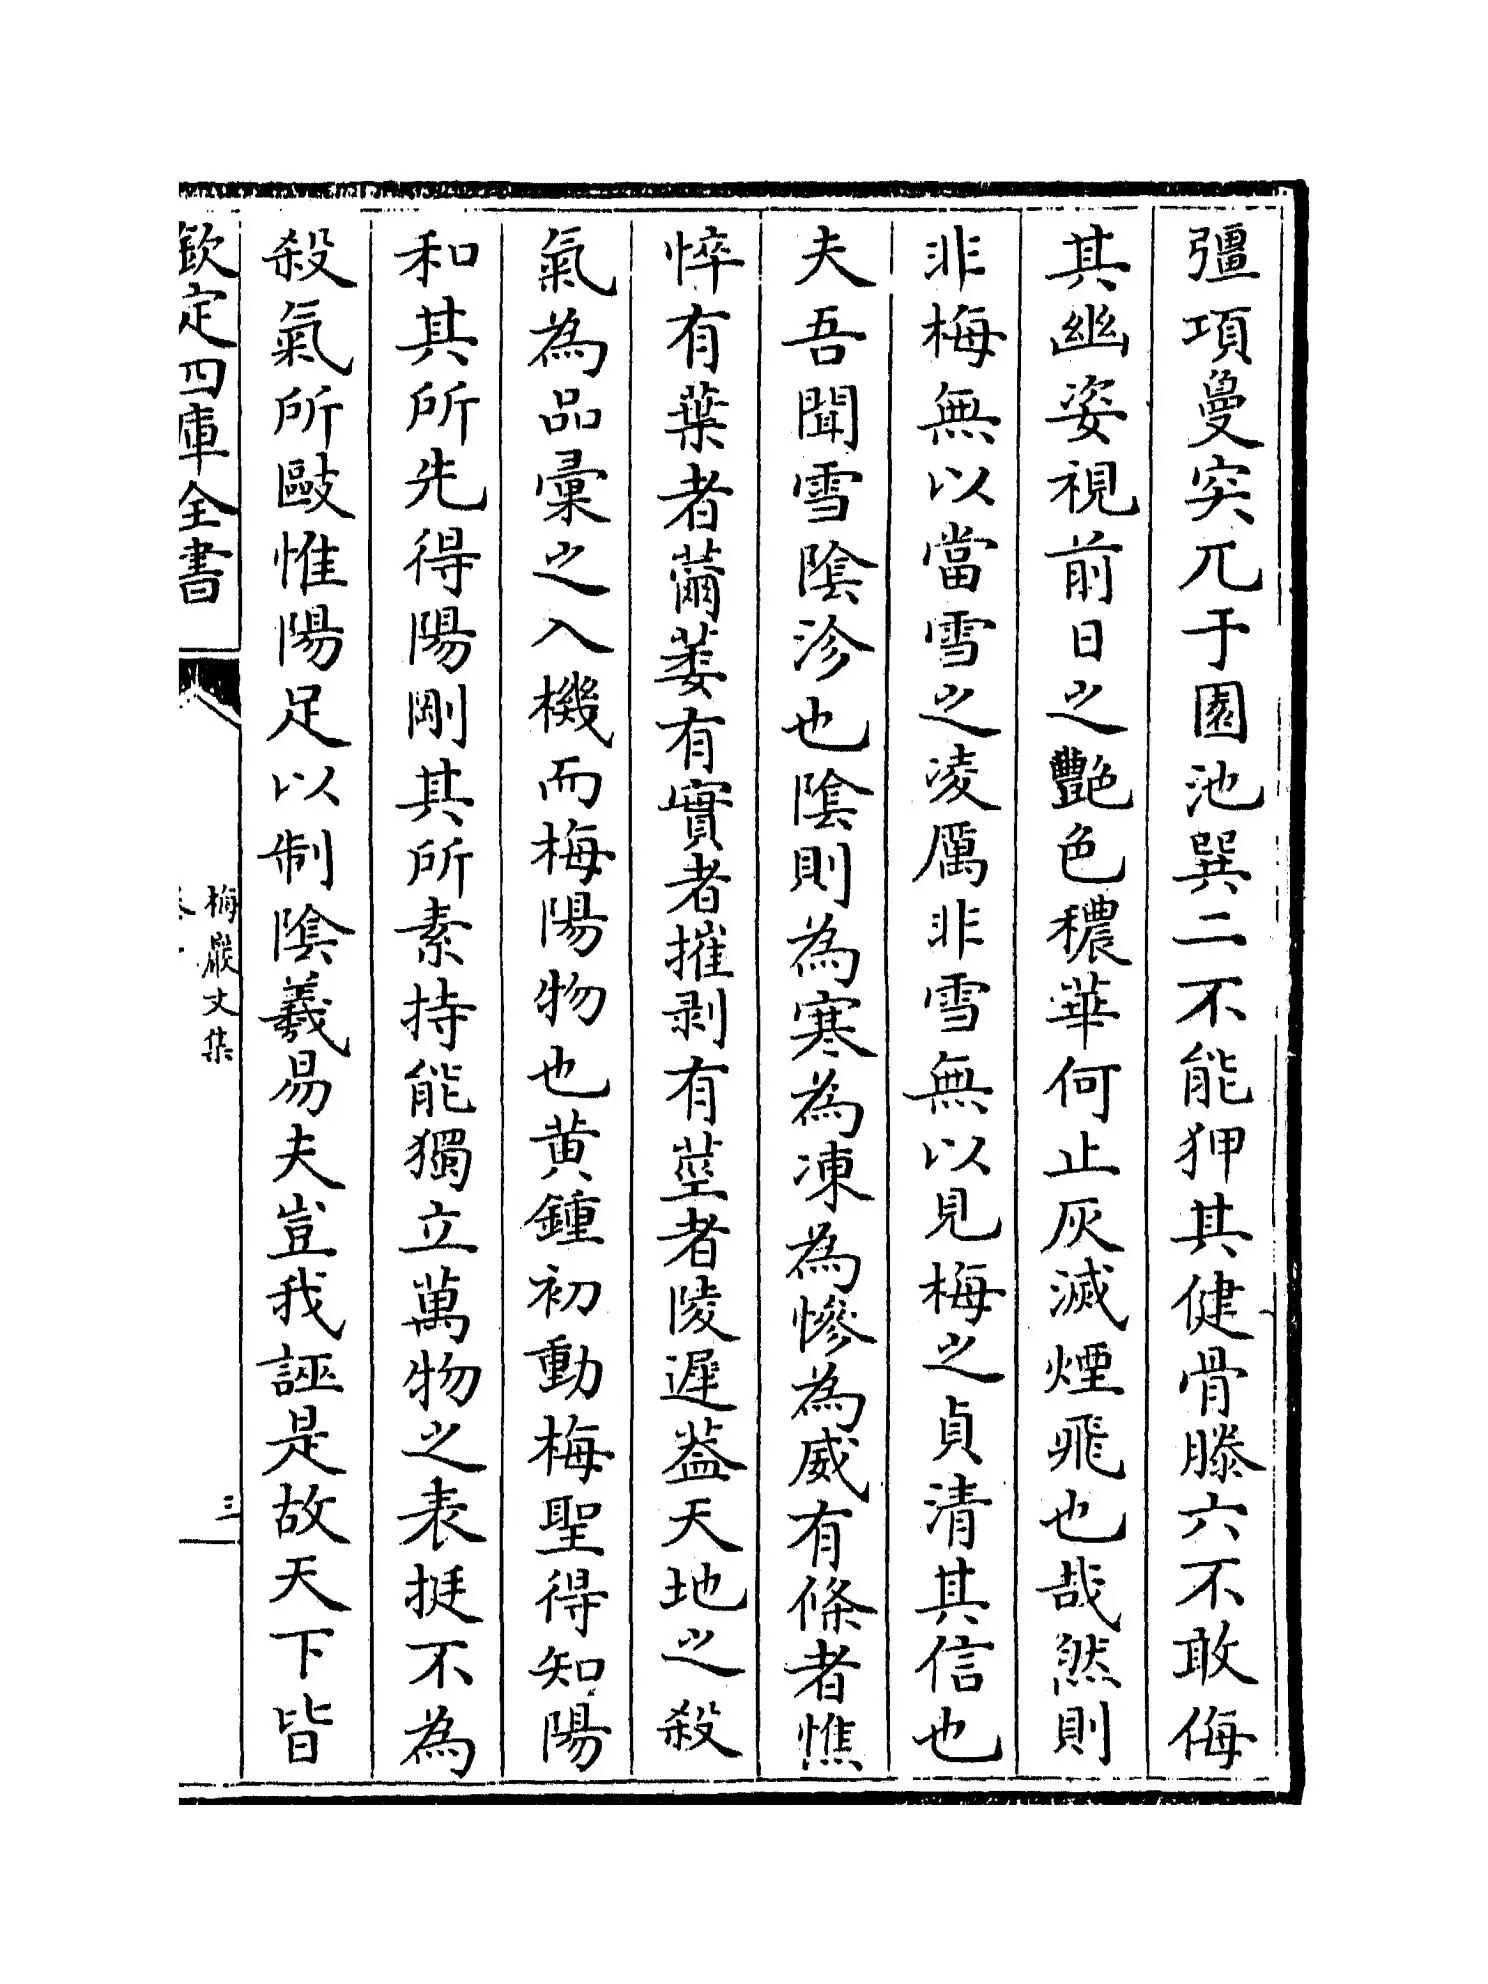 彊項敻突兀于園池巽二不能狎其健骨滕六不敢侮
其幽姿視前日之豔色穠華何止灰滅煙飛也哉然則
非梅無以當雪之凌厲非雪無以見梅之貞清其信也
夫吾聞雪陰沴也陰則為寒為凍為慘為威有條者憔
悴有葉者薾萎有實者摧剥有莖者陵遲葢天地之殺
氣為品彚之入機而梅陽物也黄鍾初動梅聖得知陽
和其所先得陽剛其所素持能獨立萬物之表挺不為
殺氣所敺惟陽足以制陰羲易夫豈我誣是故天下皆
欽定四庫全書
梅巖文集
三